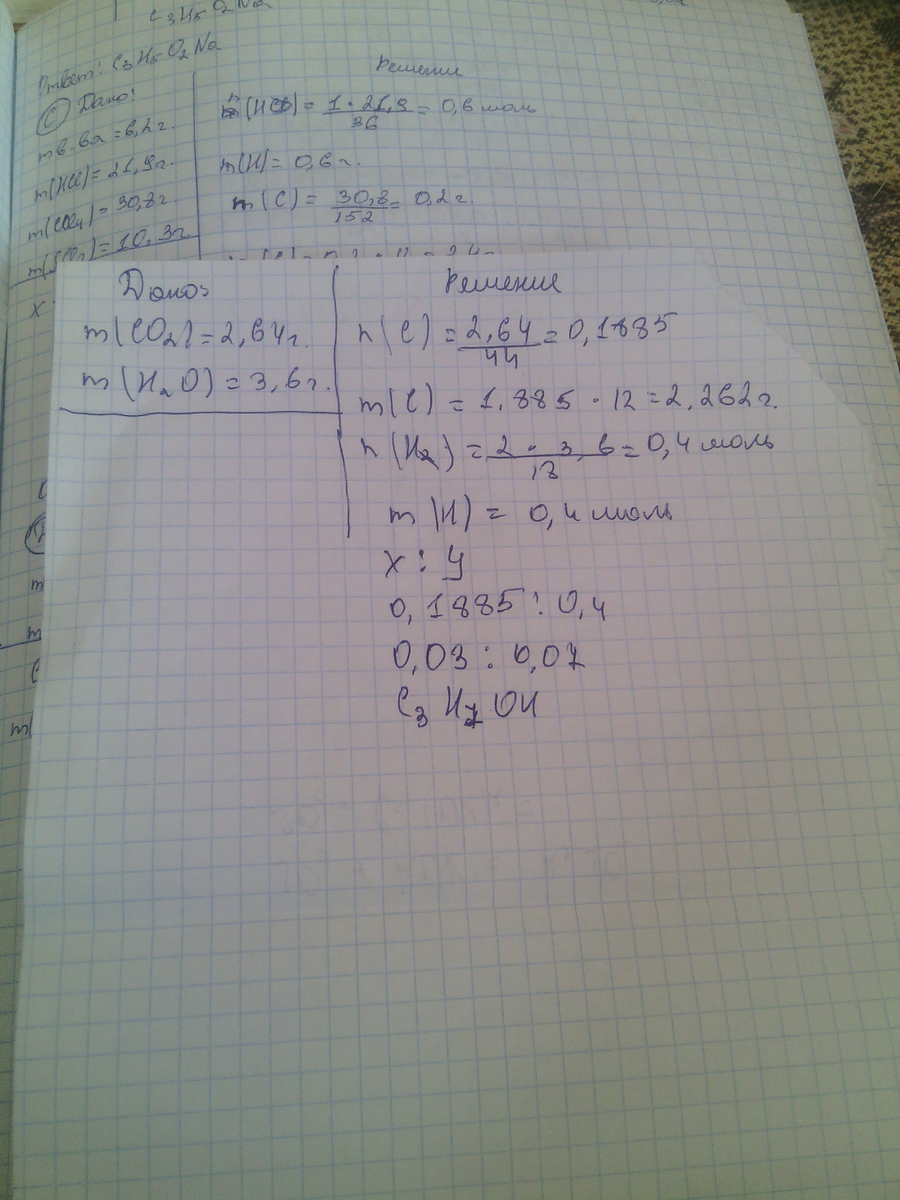 C₃H₅O₂Na
Ответ: C₃H₅O₂Na
Решение
C Дано:
m в-ва = 6,2 г.
m(HCl) = 21,9 г.
m(CCl₄) = 30,8 г
= 10,3 г
n(HCl) = 1 · 21,9 / 36 = 0,6 моль
m(H) = 0,6 г.
m(C) = 30,8 / 152 = 0,2 г.
x
Дано:
m(CO₂) = 2,64 г.
m(H₂O) = 3,6 г.
Решение
n(C) = 2,64 / 44 = 0,1885
m(C) = 1,885 · 12 = 2,262 г.
n(H₂) = 2 · 3,6 / 18 = 0,4 моль
m(H) = 0,4 моль
x : y
0,1885 : 0,4
0,03 : 0,07
C₃H₇OH